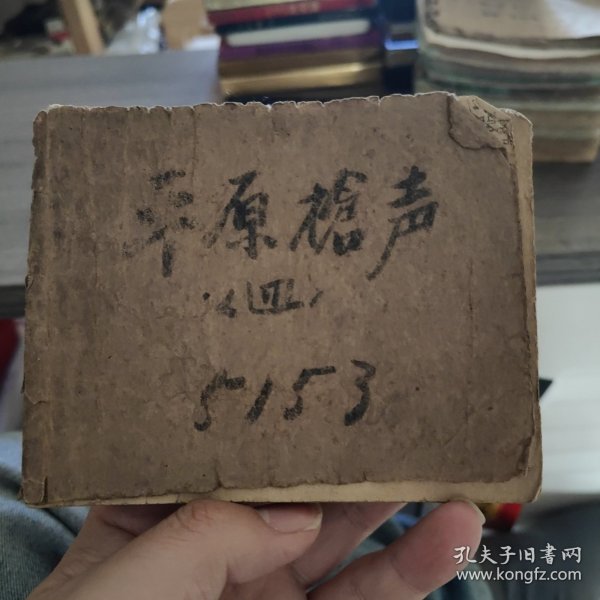 平原槍声
(四)
5153
孔夫子旧書网
www.kongfz.com